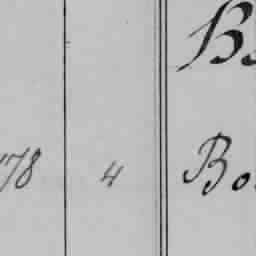 B
78 4 Bo